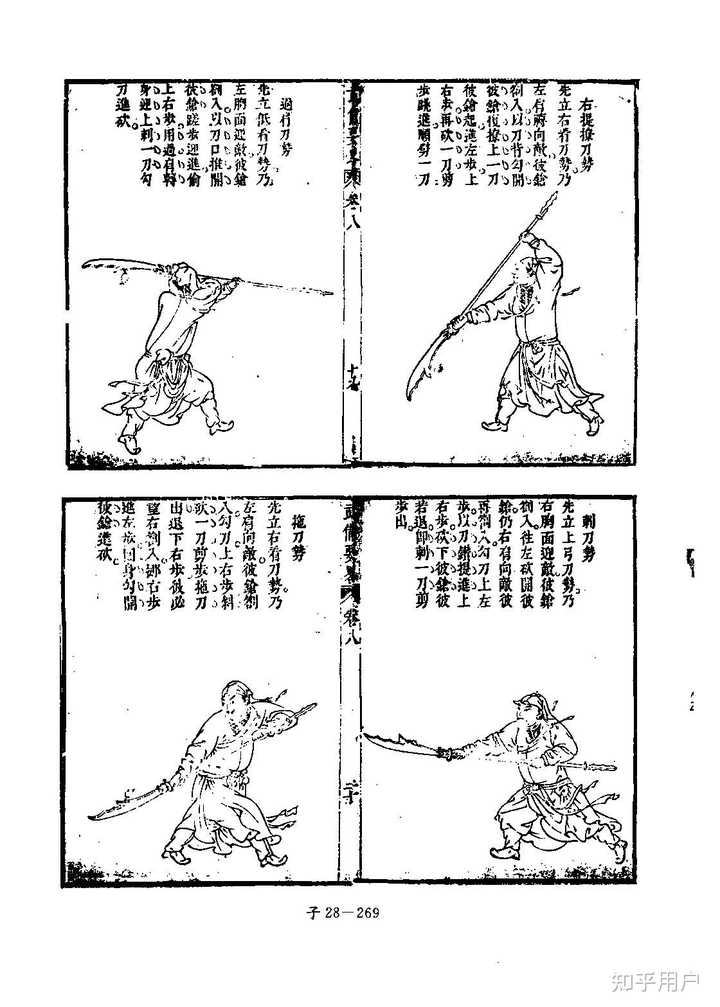 右提撩刀勢
先立右看刀勢乃
左肩膊向敵彼鎗
劄入以刀背勾開
彼鎗復撩上一刀
彼鎗起進左步上
右步再砍一刀剪
步跳進順劈一刀
卷八
十九
過肩刀勢
先立低看刀勢乃
左胸面迎敵彼鎗
劄入以刀口推開
彼鎗蹉步迎進偷
上右步用過肩轉
身迎上刺一刀勾
刀進砍
刺刀勢
先立上弓刀勢乃
右胸面迎敵彼鎗
劄入往左砍開彼
鎗仍右肩向敵彼
再劄入勾刀上左
步以刀鐏提進上
右步砍下彼鎗彼
若退卽刺一刀剪
步出
武備要畧
卷八
二十
拖刀勢
先立右看刀勢乃
左肩向敵彼鎗劄
入勾刀上右步斜
砍一刀剪步拖刀
出退下右步彼必
望右劄入挪右步
進左步回身勾開
彼鎗進砍
子 28—269
知乎用户